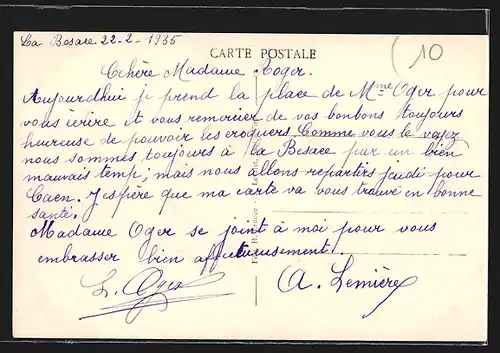 La Besace 22-2-1935
CARTE POSTALE
(10
Chère Madame Roger.
Aujourdhui je prend la place de Mme Oger pour
vous écrire et vous remercier de vos bonbons toujours
heureuse de pouvoir les croquers. Comme vous le voyez
nous sommes toujours à la Besace par un bien
mauvais temp; mais nous allons repartirs jeudi pour
Caen. J'espère que ma carte va vous trouvé en bonne
santé.
Madame Oger se joint à moi pour vous
embrasser bien affectueusement.
L. Oger
A. Lemière